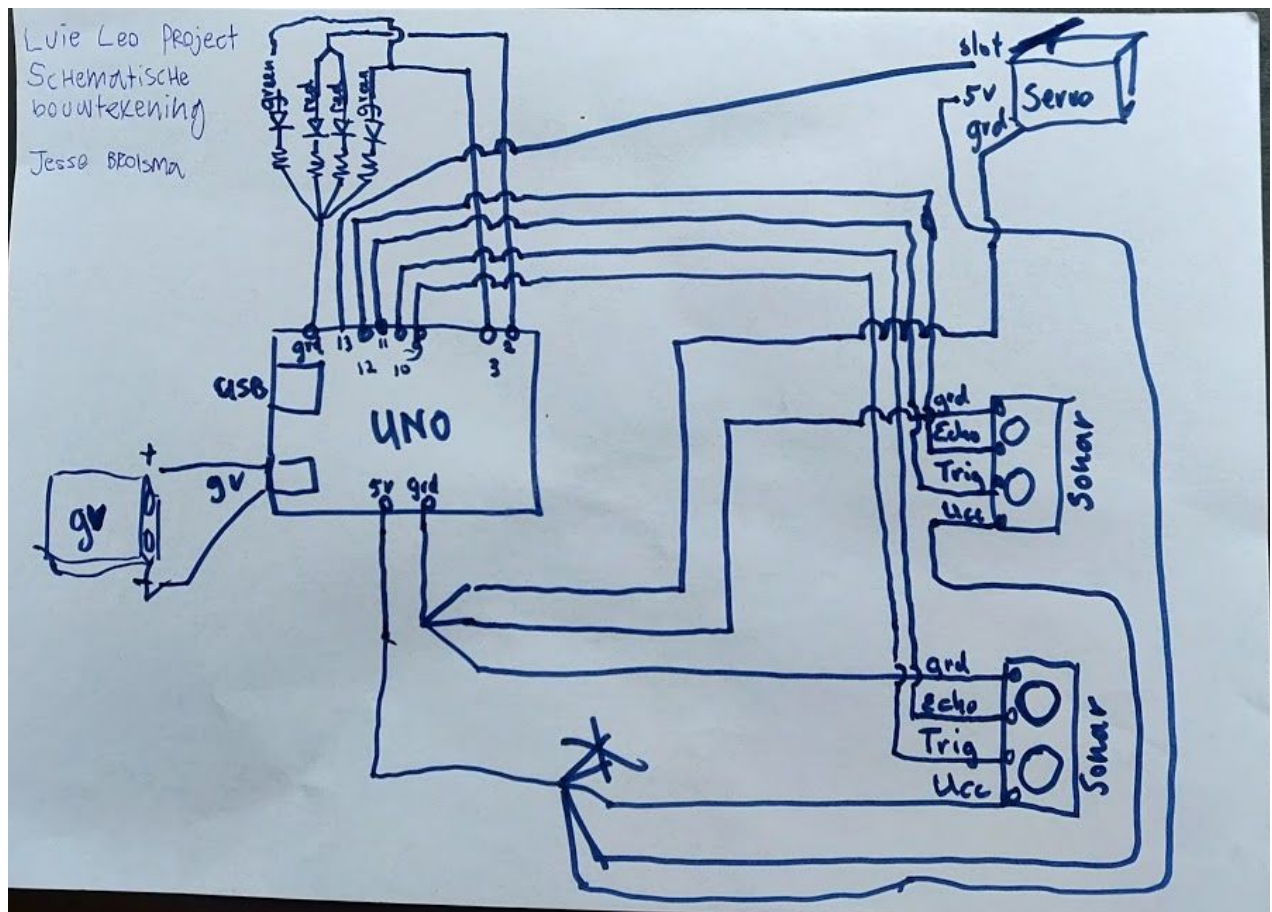 Luie Leo Project
Schematische
bouwtekening
Jesse Brolsma
green
red
red
green
slot
5v
grd
Servo
grd
13
12
11
10
9
3
2
USB
UNO
9v
5v
grd
+
9v
-
grd
Echo
Trig
Vcc
Sonar
grd
Echo
Trig
Vcc
Sonar